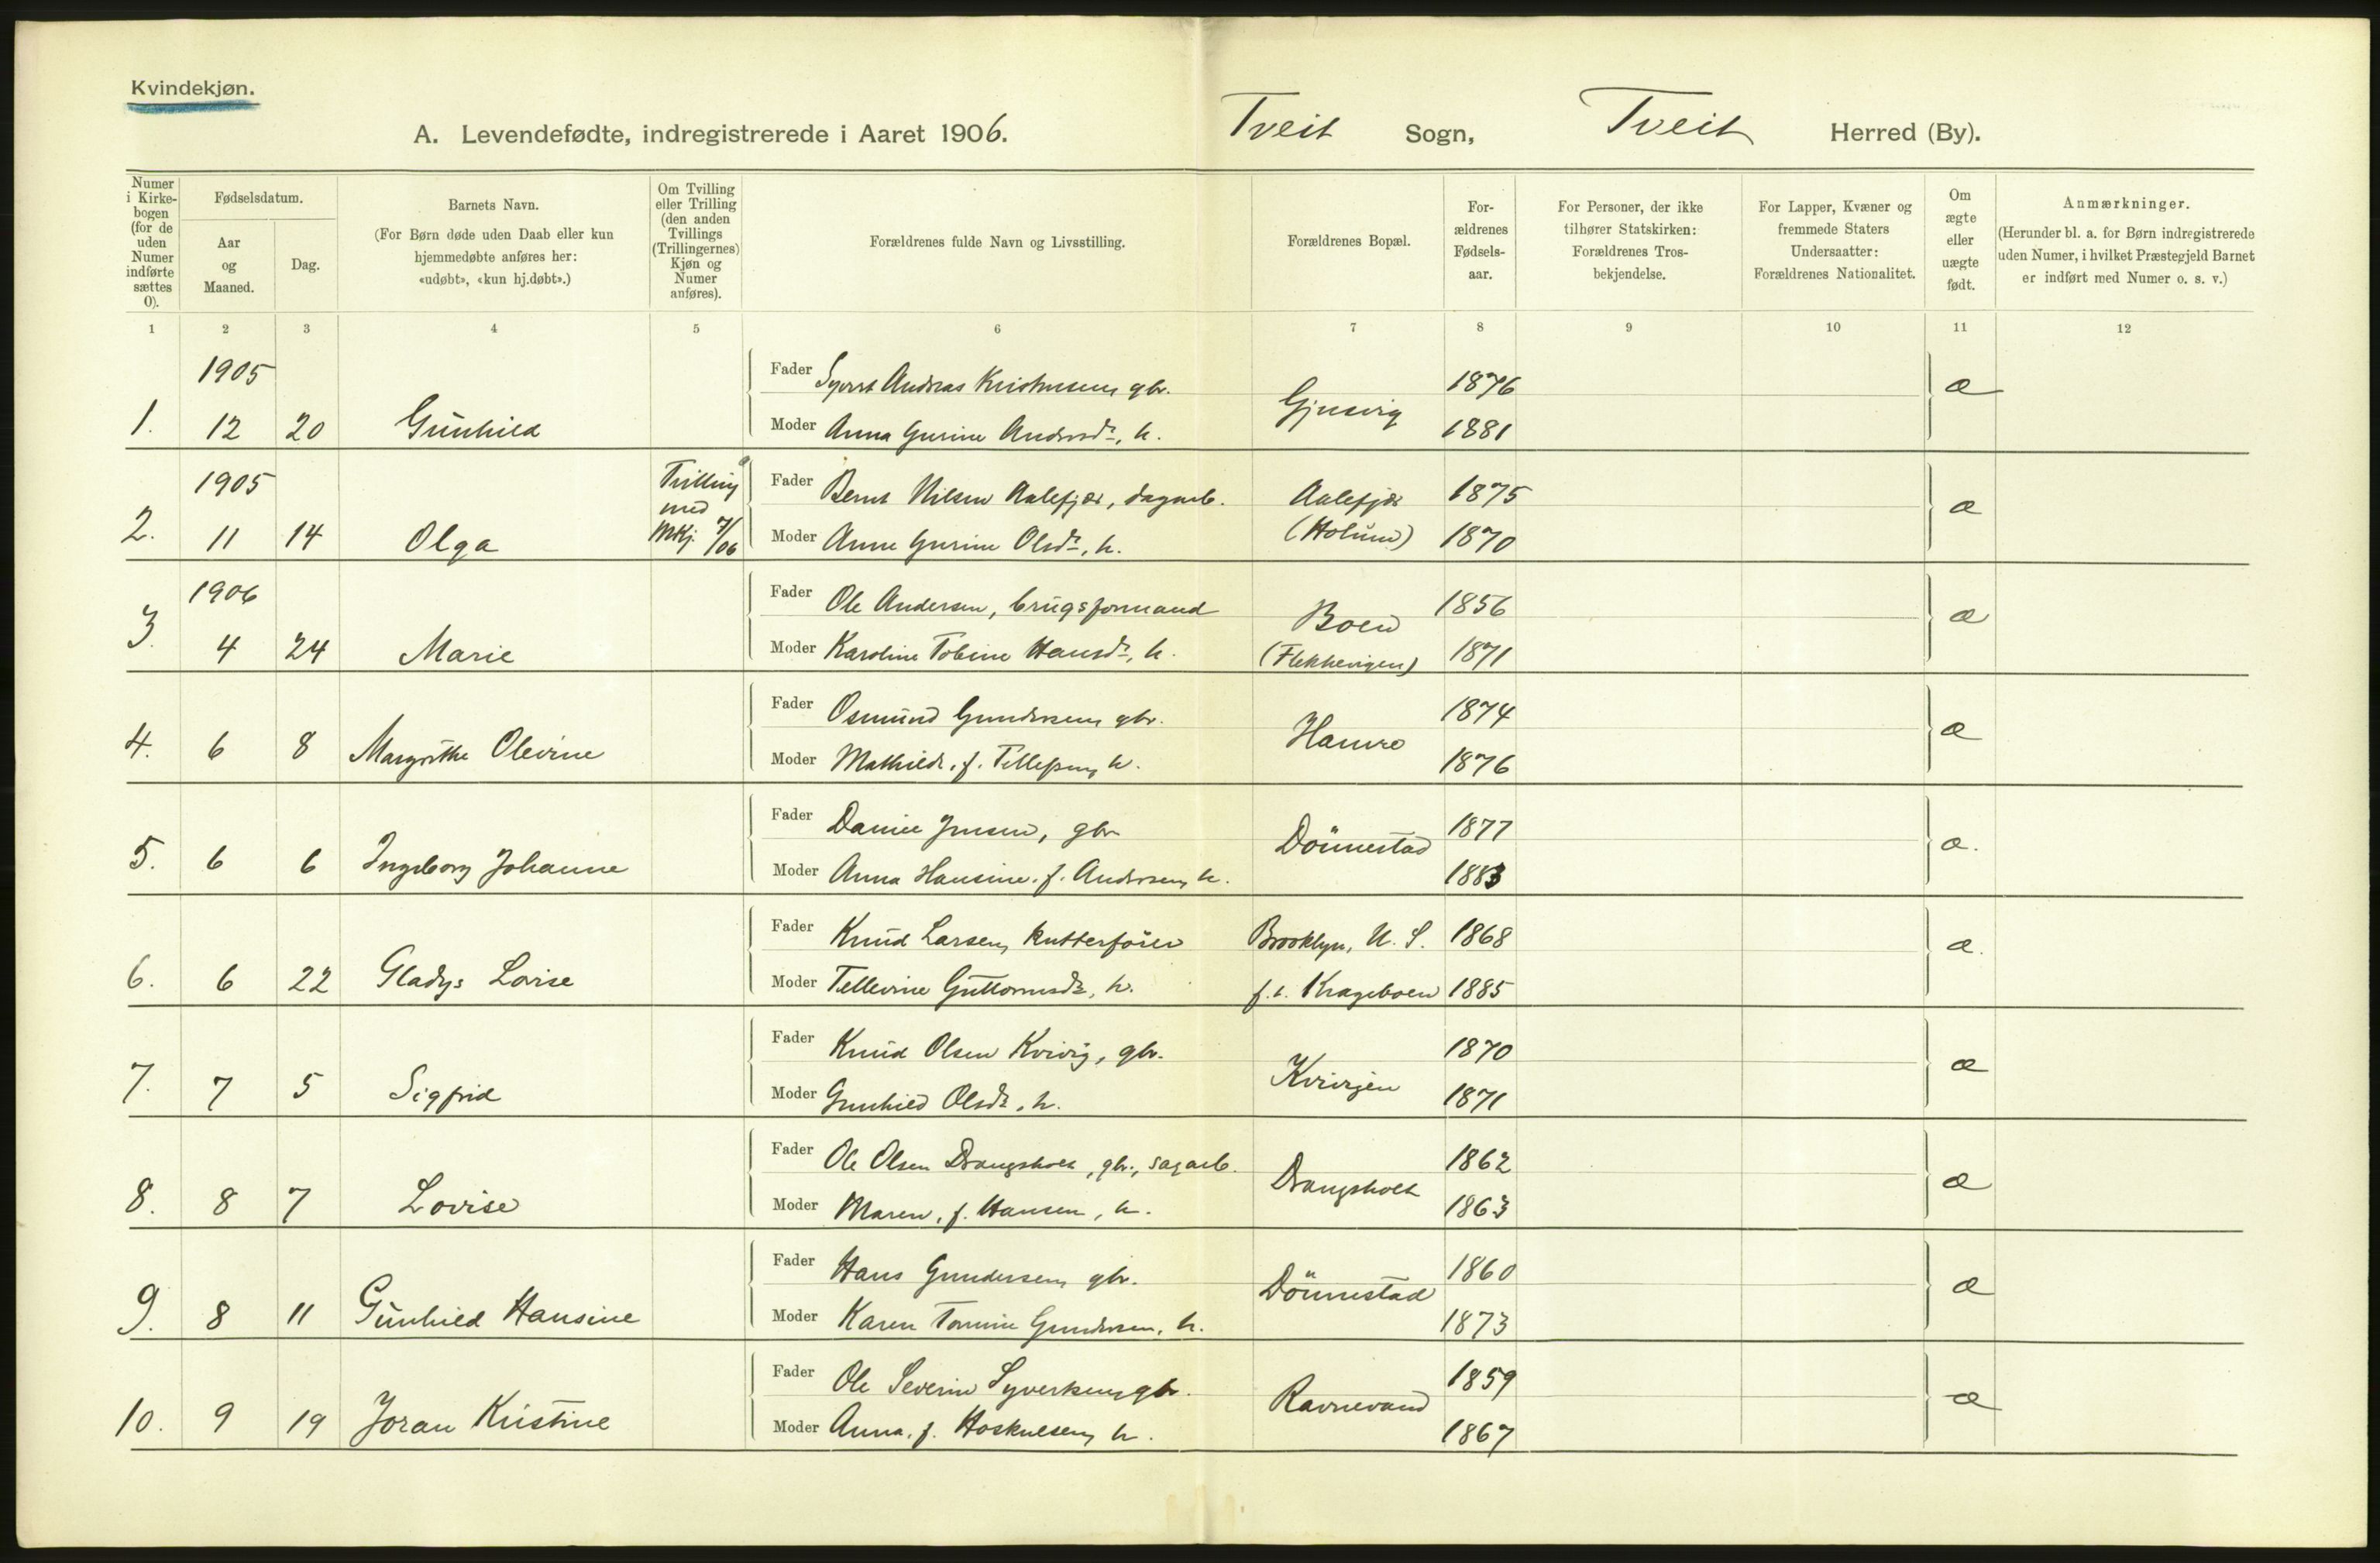 Kvindekjøn.
A. Levendefødte, indregistrerede i Aaret 1906. Tveit Sogn, Tveit Herred (By).
Numer i Kirke-bogen (for de uden Numer indførte sættes 0).
Fødselsdatum.
Aar og Maaned.
Dag.
Barnets Navn.
(For Børn døde uden Daab eller kun hjemmedøbte anføres her: «udøbt», «kun hj.døbt».)
Om Tvilling eller Trilling (den anden Tvillings (Trillingernes) Kjøn og Numer anføres).
Forældrenes fulde Navn og Livsstilling.
Forældrenes Bopæl.
For-ældrenes Fødsels-aar.
For Personer, der ikke tilhører Statskirken: Forældrenes Tros-bekjendelse.
For Lapper, Kvæner og fremmede Staters Undersaatter: Forældrenes Nationalitet.
Om ægte eller uægte født.
Anmærkninger.
(Herunder bl. a. for Børn indregistrerede uden Numer, i hvilket Præstegjeld Barnet er indført med Numer o. s. v.)
1 2 3 4 5 6 7 8 9 10 11 12
1905 Fader Andreas gbr. 1876 æ
1. 12 20 Gunhild Moder Anna Gurine Andersdr, h. 1881
1905 Tvilling Fader Bernt Nilsen Aalefjær, dagarb. Aalefjær 1875 æ
med
2. 11 14 Olga MKj. 7/06 Moder Anne Gurine Olsdr, h. (Holum) 1870
1906 Fader Ole Andersen, brugsformand Boen 1856 æ
3. 4 24 Marie Moder Karoline Tobine Hansdr, h. (Flekkevigen) 1871
Fader Osmund Gundersen, gbr. Hamre 1874 æ
4. 6 8 Margrethe Olevine Moder Mathilde, f. Tellefsen, h. 1876
Fader Daniel Jensen, gbr Dønnestad 1877 æ.
5. 6 6 Ingeborg Johanne Moder Anna Hansine, f. Andersen, h. 1883
Fader Knud Larsen, kutterfører Brooklyn, U. S. 1868 æ.
6. 6 22 Gladys Lovise Moder Tellevine Guttormsdr, h. f. t. Krageboen 1885
Fader Knud Olsen Kvivig, gbr. 1870 æ
7. 7 5 Sigfrid Moder Gunhild Olsdr, h. 1871
Fader Ole Olsen Drangsholt, gbr., sagarb. Drangsholt 1862 æ
8. 8 7 Lovise Moder Maren, f. Hansen, h. 1863
Fader Hans Gundersen, gbr. Dønnestad 1860 æ
9. 8 11 Gunhild Hansine Moder Karen Tomine Gundersen, h. 1873
Fader Ole Severin Syvertsen, gbr. Ravnevand 1859 æ
10. 9 19 Joran Kristine Moder Anna, f. Hoskuldsen, h. 1867